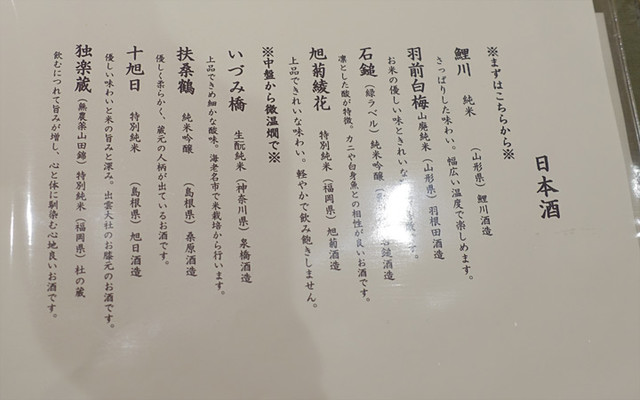 日本酒
※まずはこちらから※
鯉川 純米 （山形県）鯉川酒造
さっぱりした味わい。幅広い温度で楽しめます。
羽前白梅 山廃純米（山形県）羽根田酒造
お米の優しい味ときれいな
石鎚（緑ラベル）純米吟醸 石鎚酒造
凛とした酸が特徴。カニや白身魚との相性が良いお酒です。
旭菊綾花 特別純米（福岡県）旭菊酒造
上品できれいな味わい。軽やかで飲み飽きしません。
※中盤から微温燗で※
いづみ橋 生酛純米（神奈川県）泉橋酒造
上品できめ細かな酸味。海老名市で米栽培から行います。
扶桑鶴 純米吟醸（島根県）桑原酒造
優しく柔らかく、蔵元の人柄が出ているお酒です。
十旭日 特別純米（島根県）旭日酒造
優しい味わいと米の旨みと深み。出雲大社のお膝元のお酒です。
独楽蔵（無農薬山田錦）特別純米（福岡県）杜の蔵
飲むにつれて旨みが増し、心と体に馴染む心地良いお酒です。